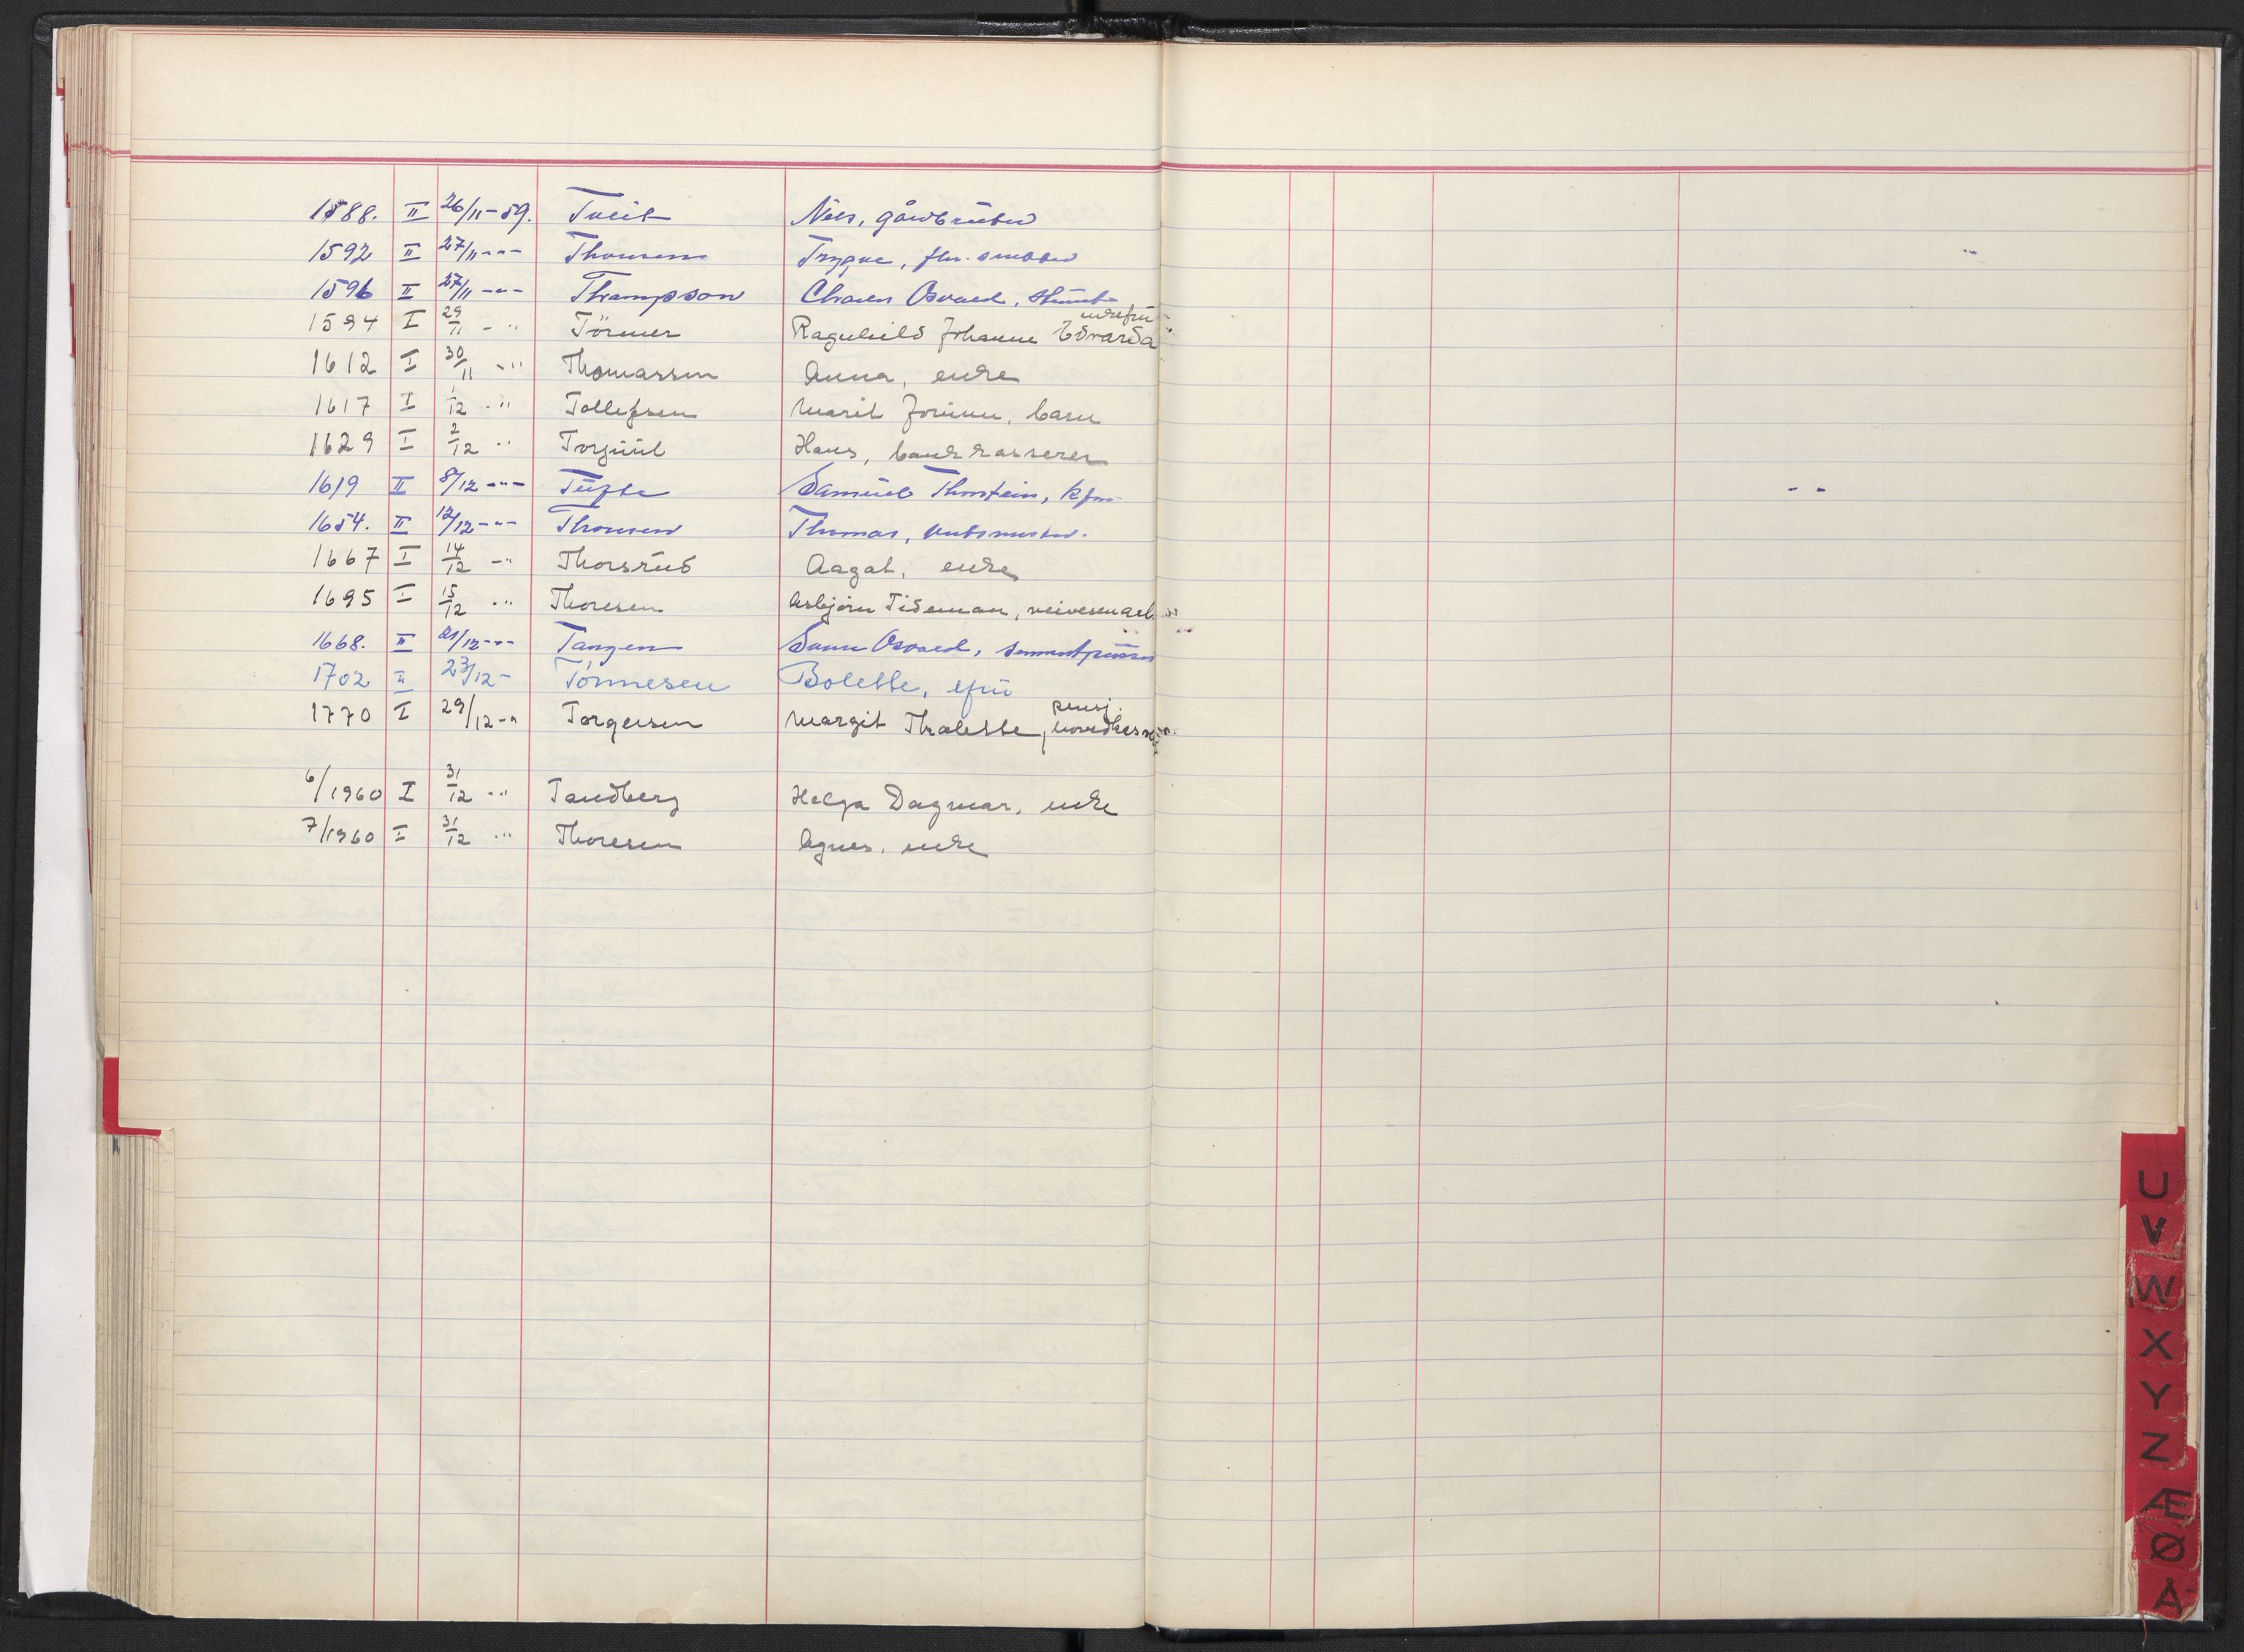 1588. II 26/11-59. Tveit Nels, gårdbruker
1592 II 27/11 -"- Thomsen Trygve, fhv. snekker
1596 II 27/11 -"- Thrampson Charles Osvald,
enkefru
1594 I 29/11 - " Törmer Ragnhild Johanne Edvarda
1612 I 30/11 - " Thomassen Anna, enke
1617 I 1/12 - " Tollefsen Marit Jorunn, barn
1629 I 2/12 " Torjuul Hans, bankkasserer
1619 II 8/12 -"- Tufte Samuel Thorstein, kjm
1654. II 12/12 -"- Thomsen Thomas,
1667 I 14/12 - " Thorsrud Aagot, enke
1695 I 15/12 - " Thoresen Asbjørn Tideman, veivesenarb.
1668. II 21/12 -"- Tangen Osvald,
1702 II 23/12 - Tönnesen Bolette, efru
pensj.
1770 I 29/12 - " Torgersen Margit Thalette,
6/1960 I 31/12 - " Tandberg Helga Dagmar, enke
7/1960 I 31/12 - " Thoresen Agnes, enke
U
V
W
X
Y
Z
Æ
Ø
Å